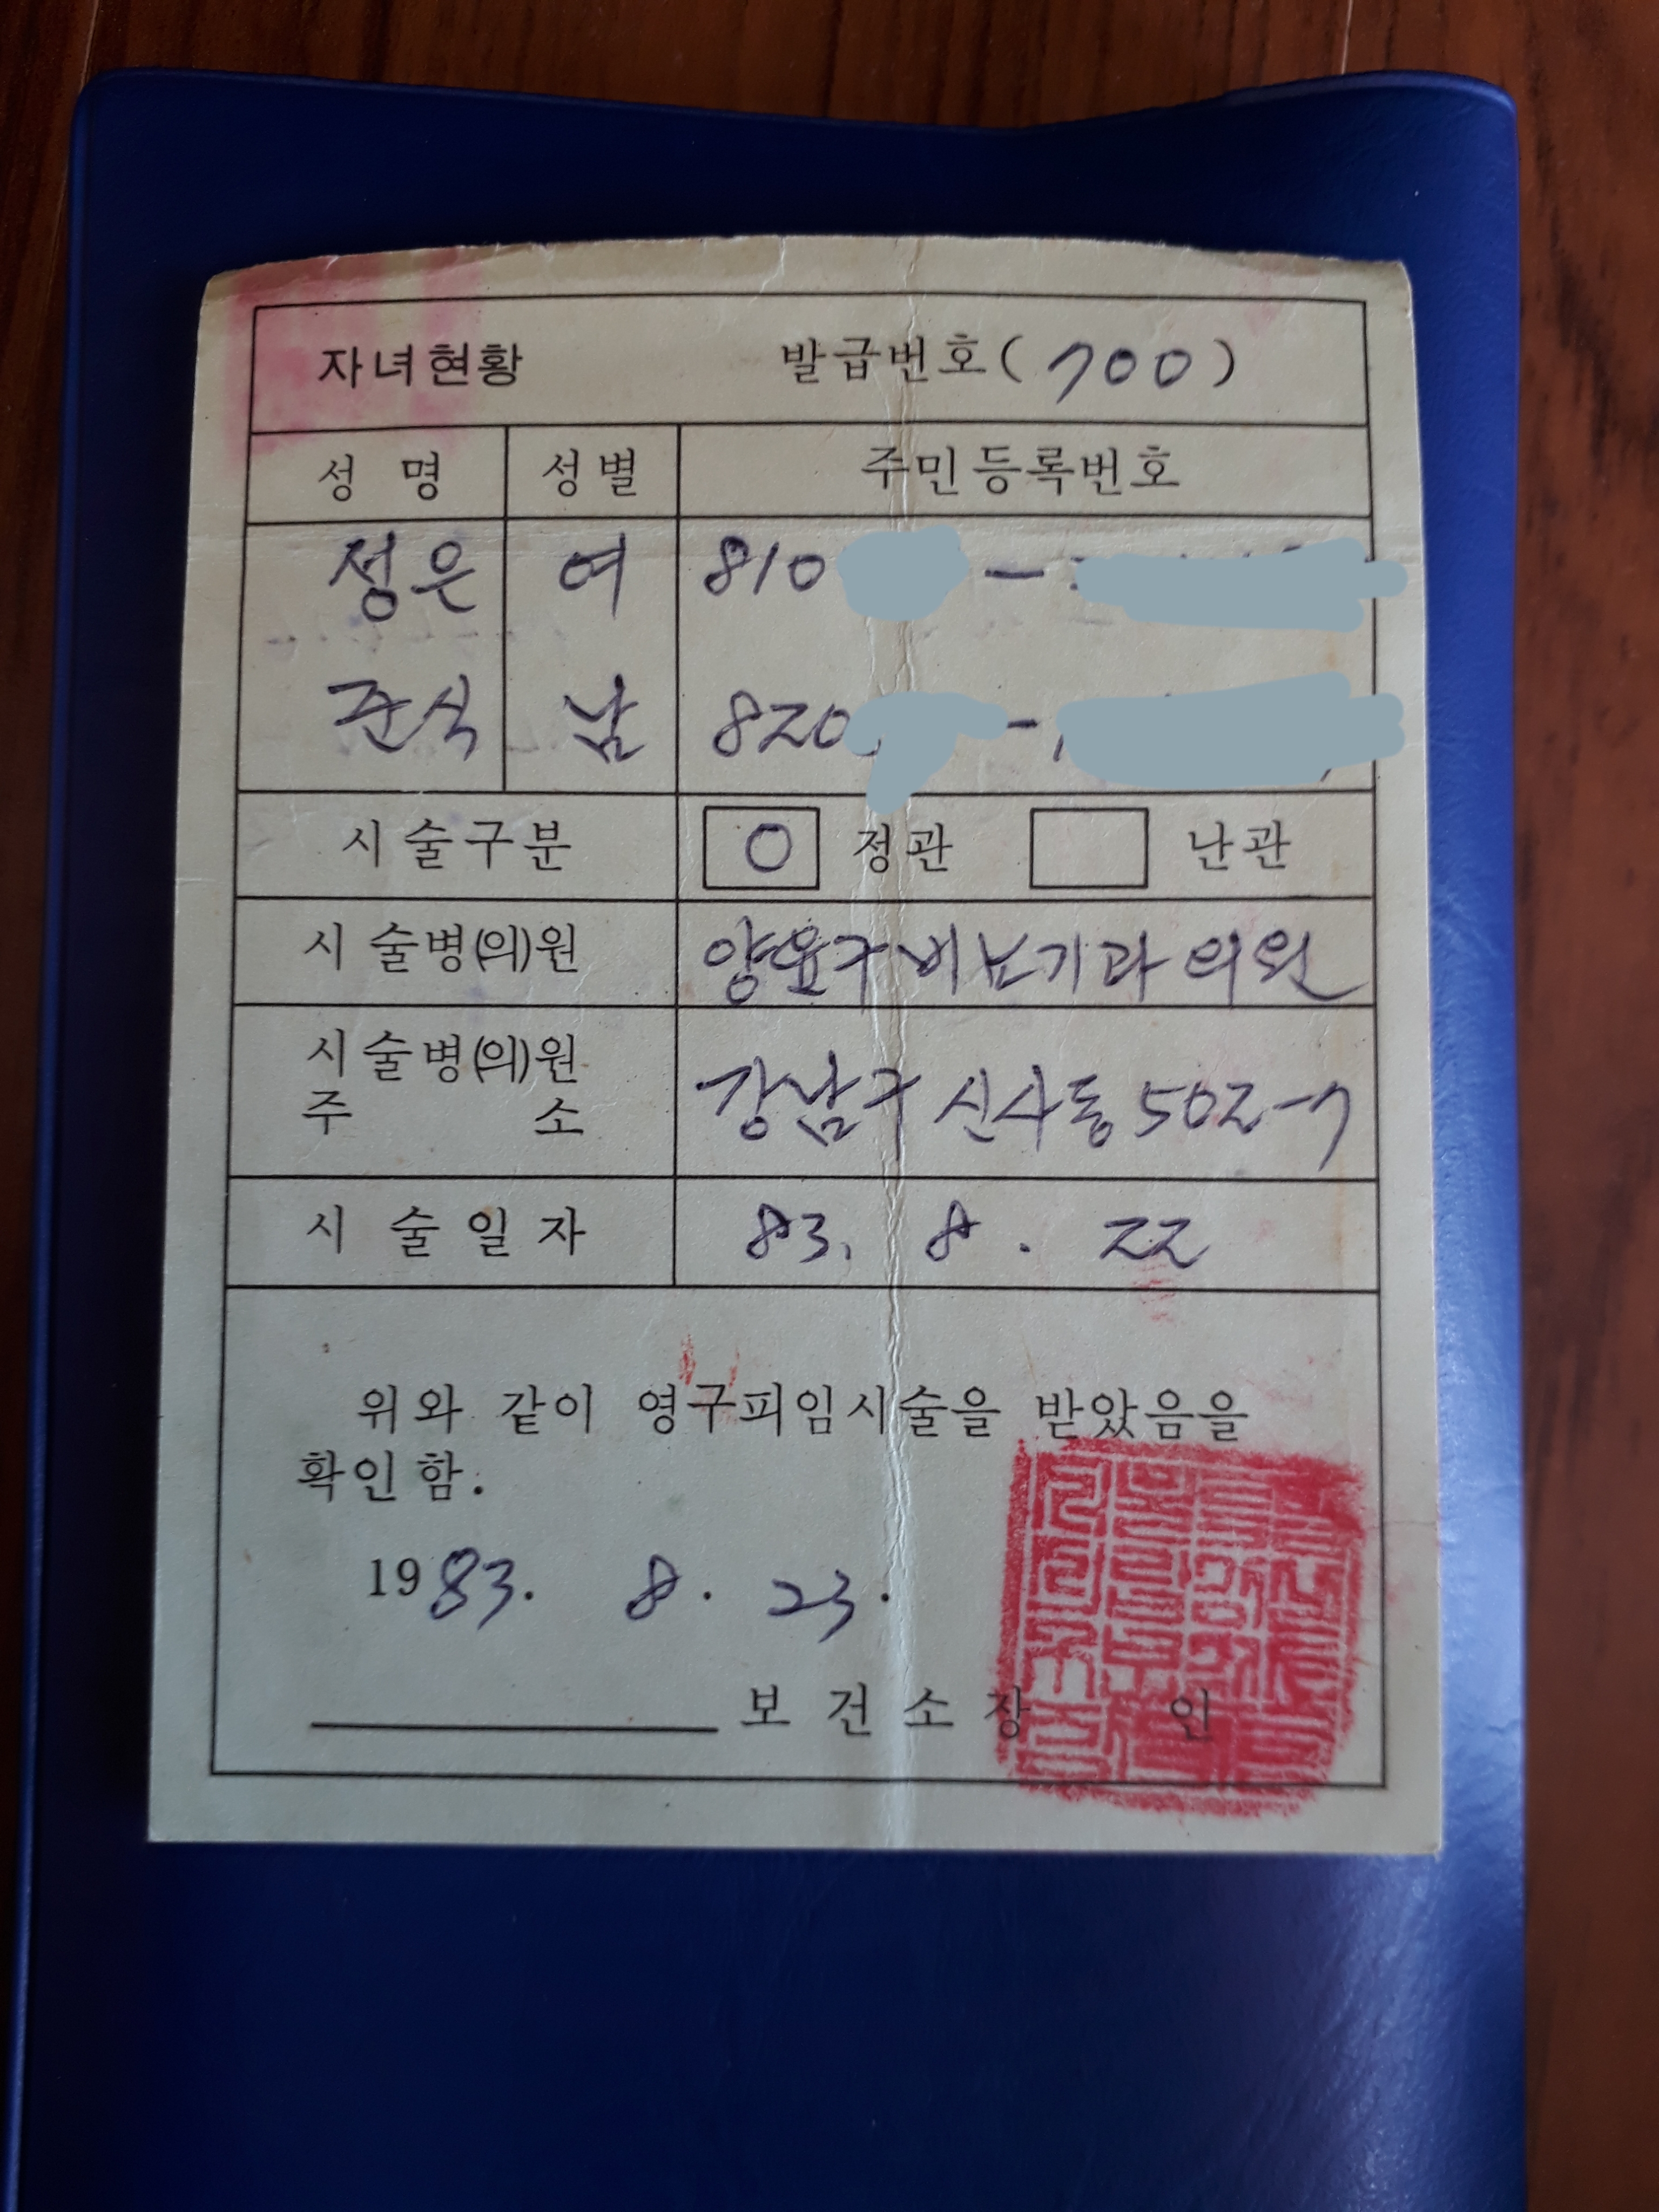 자녀현황 발급번호(700)
성 명 성별 주민등록번호
정은 여 810 -
준식 남 820 -
시술구분 O 정관 난관
시술병(의)원 비뇨기과 의원
시술병(의)원 주 소 강남구 신사동 502-7
시 술 일 자 83. 8. 22
위와 같이 영구피임시술을 받았음을
확인함.
1983. 8. 23.
보건소장 인